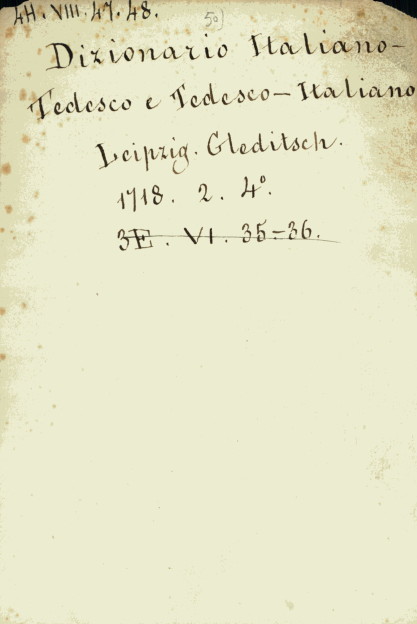 4H. VIII. 47. 48.
50)
Dizionario Italiano-
Tedesco e Tedesco-Italiano
Leipzig. Gleditsch.
1718. 2. 4°.
3E. VI. 35-36.